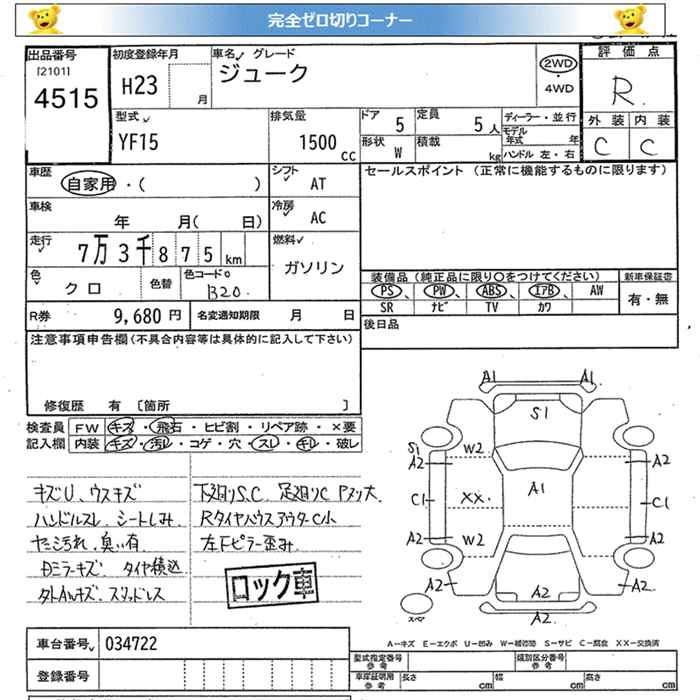 完全ゼロ切りコーナー
出品番号
[2101]
4515
初度登録年月
H23
月
車名 グレード
ジューク
2WD
・
4WD
評価点
R
外装 内装
C C
型式
YF15
排気量
1500 CC
ドア
5
定員
5 人
形状
W
積載
kg
ディーラー・並行
モデル年式 年
ハンドル 左・右
車歴
自家用・( )
シフト
AT
車検
年 月( 日)
冷房
AC
走行
7万 3千 8 7 5 km
燃料
ガソリン
色
クロ
色替
色コード
B20
R券 9,680 円
名変通知期限 月 日
セールスポイント (正常に機能するものに限ります)
装備品 (純正品に限り○をつけてください)
PS、 PW、 ABS、 エアB、 AW
SR ナビ TV カワ
新車保証書
有・無
後日品
注意事項申告欄(不具合内容等は具体的に記入して下さい)
修復歴 有 [箇所 ]
検査員記入欄
FW キズ・飛石・ヒビ割・リペア跡・×要
内装 キズ・汚レ・コゲ・穴・スレ・キレ・破レ
キズU、ウスキズ
ハンドルスレ シートしみ
たこ汚れ、臭い有
Dミラーキズ タイヤ積込
タトAWキズ・スリットレス
下廻りS.C 足廻りC Pヌリ大
Rタイヤハウスアウター C小
左Fピラー歪み
ロック車
A1 A1
S1
S1
A2 W2 A2
A1
C1 XX C1
A2 W2 A2
A2 A2 A2
A2
スペア
A－キズ E－エクボ U－凹み W－補修跡 S－サビ C－腐食 XX－交換済
車台番号 034722
登録番号
型式指定番号 参考
類別区分番号 参考
車庫証明用 参考
長さ cm
幅 cm
高さ cm